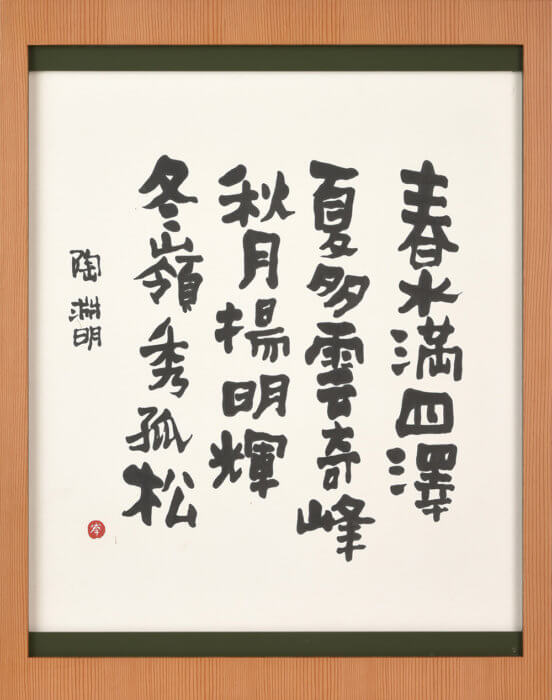 春水満四澤
夏多雲奇峰
秋月揚明輝
冬嶺秀孤松
陶淵明